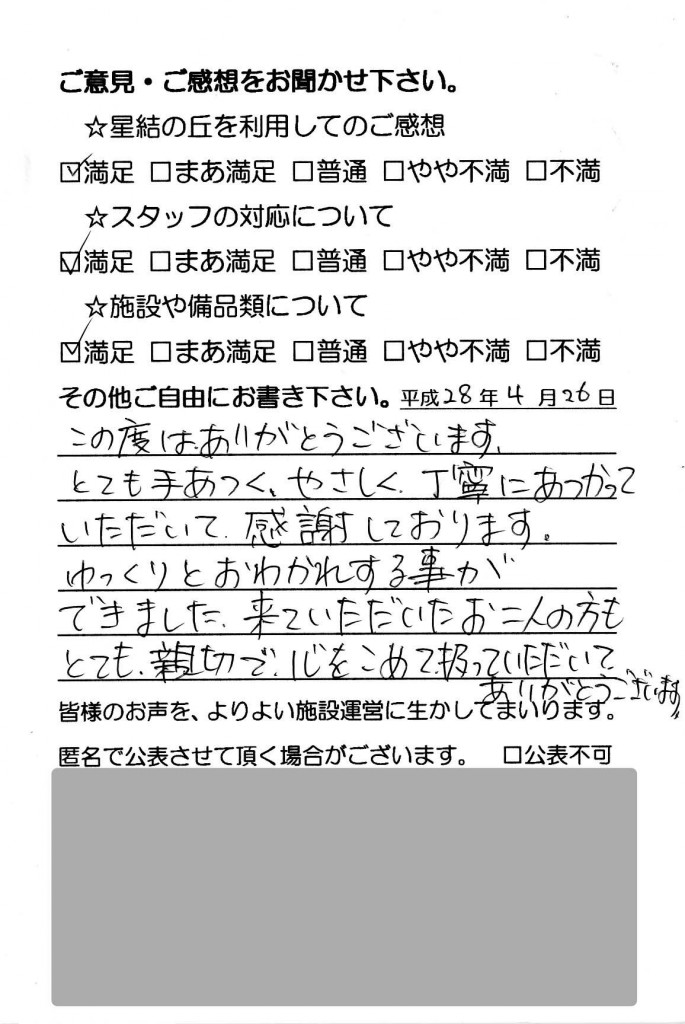 ご意見・ご感想をお聞かせ下さい。
☆星結の丘を利用してのご感想
☑満足 □まあ満足 □普通 □やや不満 □不満
☆スタッフの対応について
☑満足 □まあ満足 □普通 □やや不満 □不満
☆施設や備品類について
☑満足 □まあ満足 □普通 □やや不満 □不満
その他ご自由にお書き下さい。平成28年4月26日
この度は、ありがとうございます、
とても手あつく、やさしく、丁寧にあつかって
いただいて、感謝しております。
ゆっくりとおわかれする事が
できました、来ていただいたお二人の方も
とても、親切で、心をこめて扱っていただいて、
ありがとうございます。
皆様のお声を、よりよい施設運営に生かしてまいります。
匿名で公表させて頂く場合がございます。 □公表不可